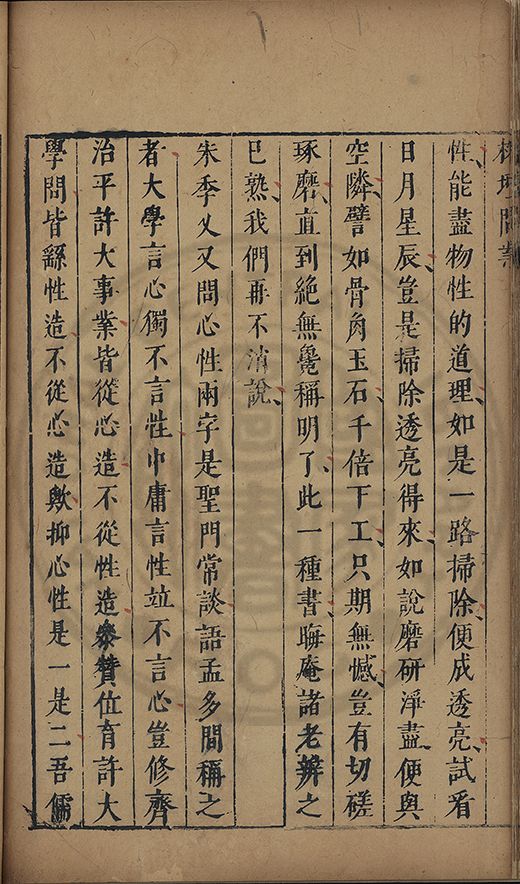 榕壇問業
性能盡物性的道理如是一路掃除便成透亮試看
日月星辰豈是掃除透亮得來如說磨研淨盡便與
空隣譬如骨角玉石千倍下工只期無憾豈有切磋
琢磨直到絕無毚稱明了此一種書晦庵諸老辨之
已熟我們再不消說
朱季乂又問心性兩字是聖門常談語孟多間稱之
者大學言心獨不言性中庸言性竝不言心豈修齊
治平許大事業皆從心造不從性造叅贊位育許大
學問皆繇性造不從心造歟抑心性是一是二吾儒